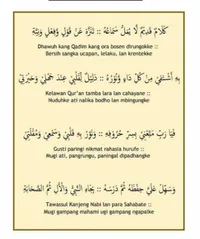 كَلَامٌ قَدِيْمٌ لَا يُمَلُّ سَمَاعُهُ :: تَنَزَّهَ عَنْ قَوْلٍ وَفِعْلٍ وَنِيَّةٍ
Dhawuh kang Qadim kang ora bosen dirungokke ::
Bersih sangka ucapan, lelaku, lan krentekke
بِهِ أَشْتَفِيْ مِنْ كُلِّ دَاءٍ وَنُوْرُهُ :: دَلِيْلٌ لِقَلْبِيْ عِنْدَ جَهْلِيْ وَحَيْرَتِيْ
Kelawan Qur'an tamba lara lan cahayane ::
Nuduhke ati nalika bodho lan mbingungke
فَيَا رَبِّ مَتِّعْنِيْ بِسِرِّ حُرُوْفِهِ :: وَنَوِّرْ بِهِ قَلْبِيْ وَسَمْعِيْ وَمُقْلَتِيْ
Gusti paringi nikmat rahasia hurufe ::
Mugi ati, pangrungu, paningal dipadhangke
وَسَهِّلْ عَلَيَّ حِفْظَهُ ثُمَّ دَرْسَهُ :: بِجَاهِ النَّبِيْ وَالْآلِ ثُمَّ الصَّحَابَةِ
Tawassul Kanjeng Nabi lan para Sahabate ::
Mugi gampang mahami ugi gampang ngapalke